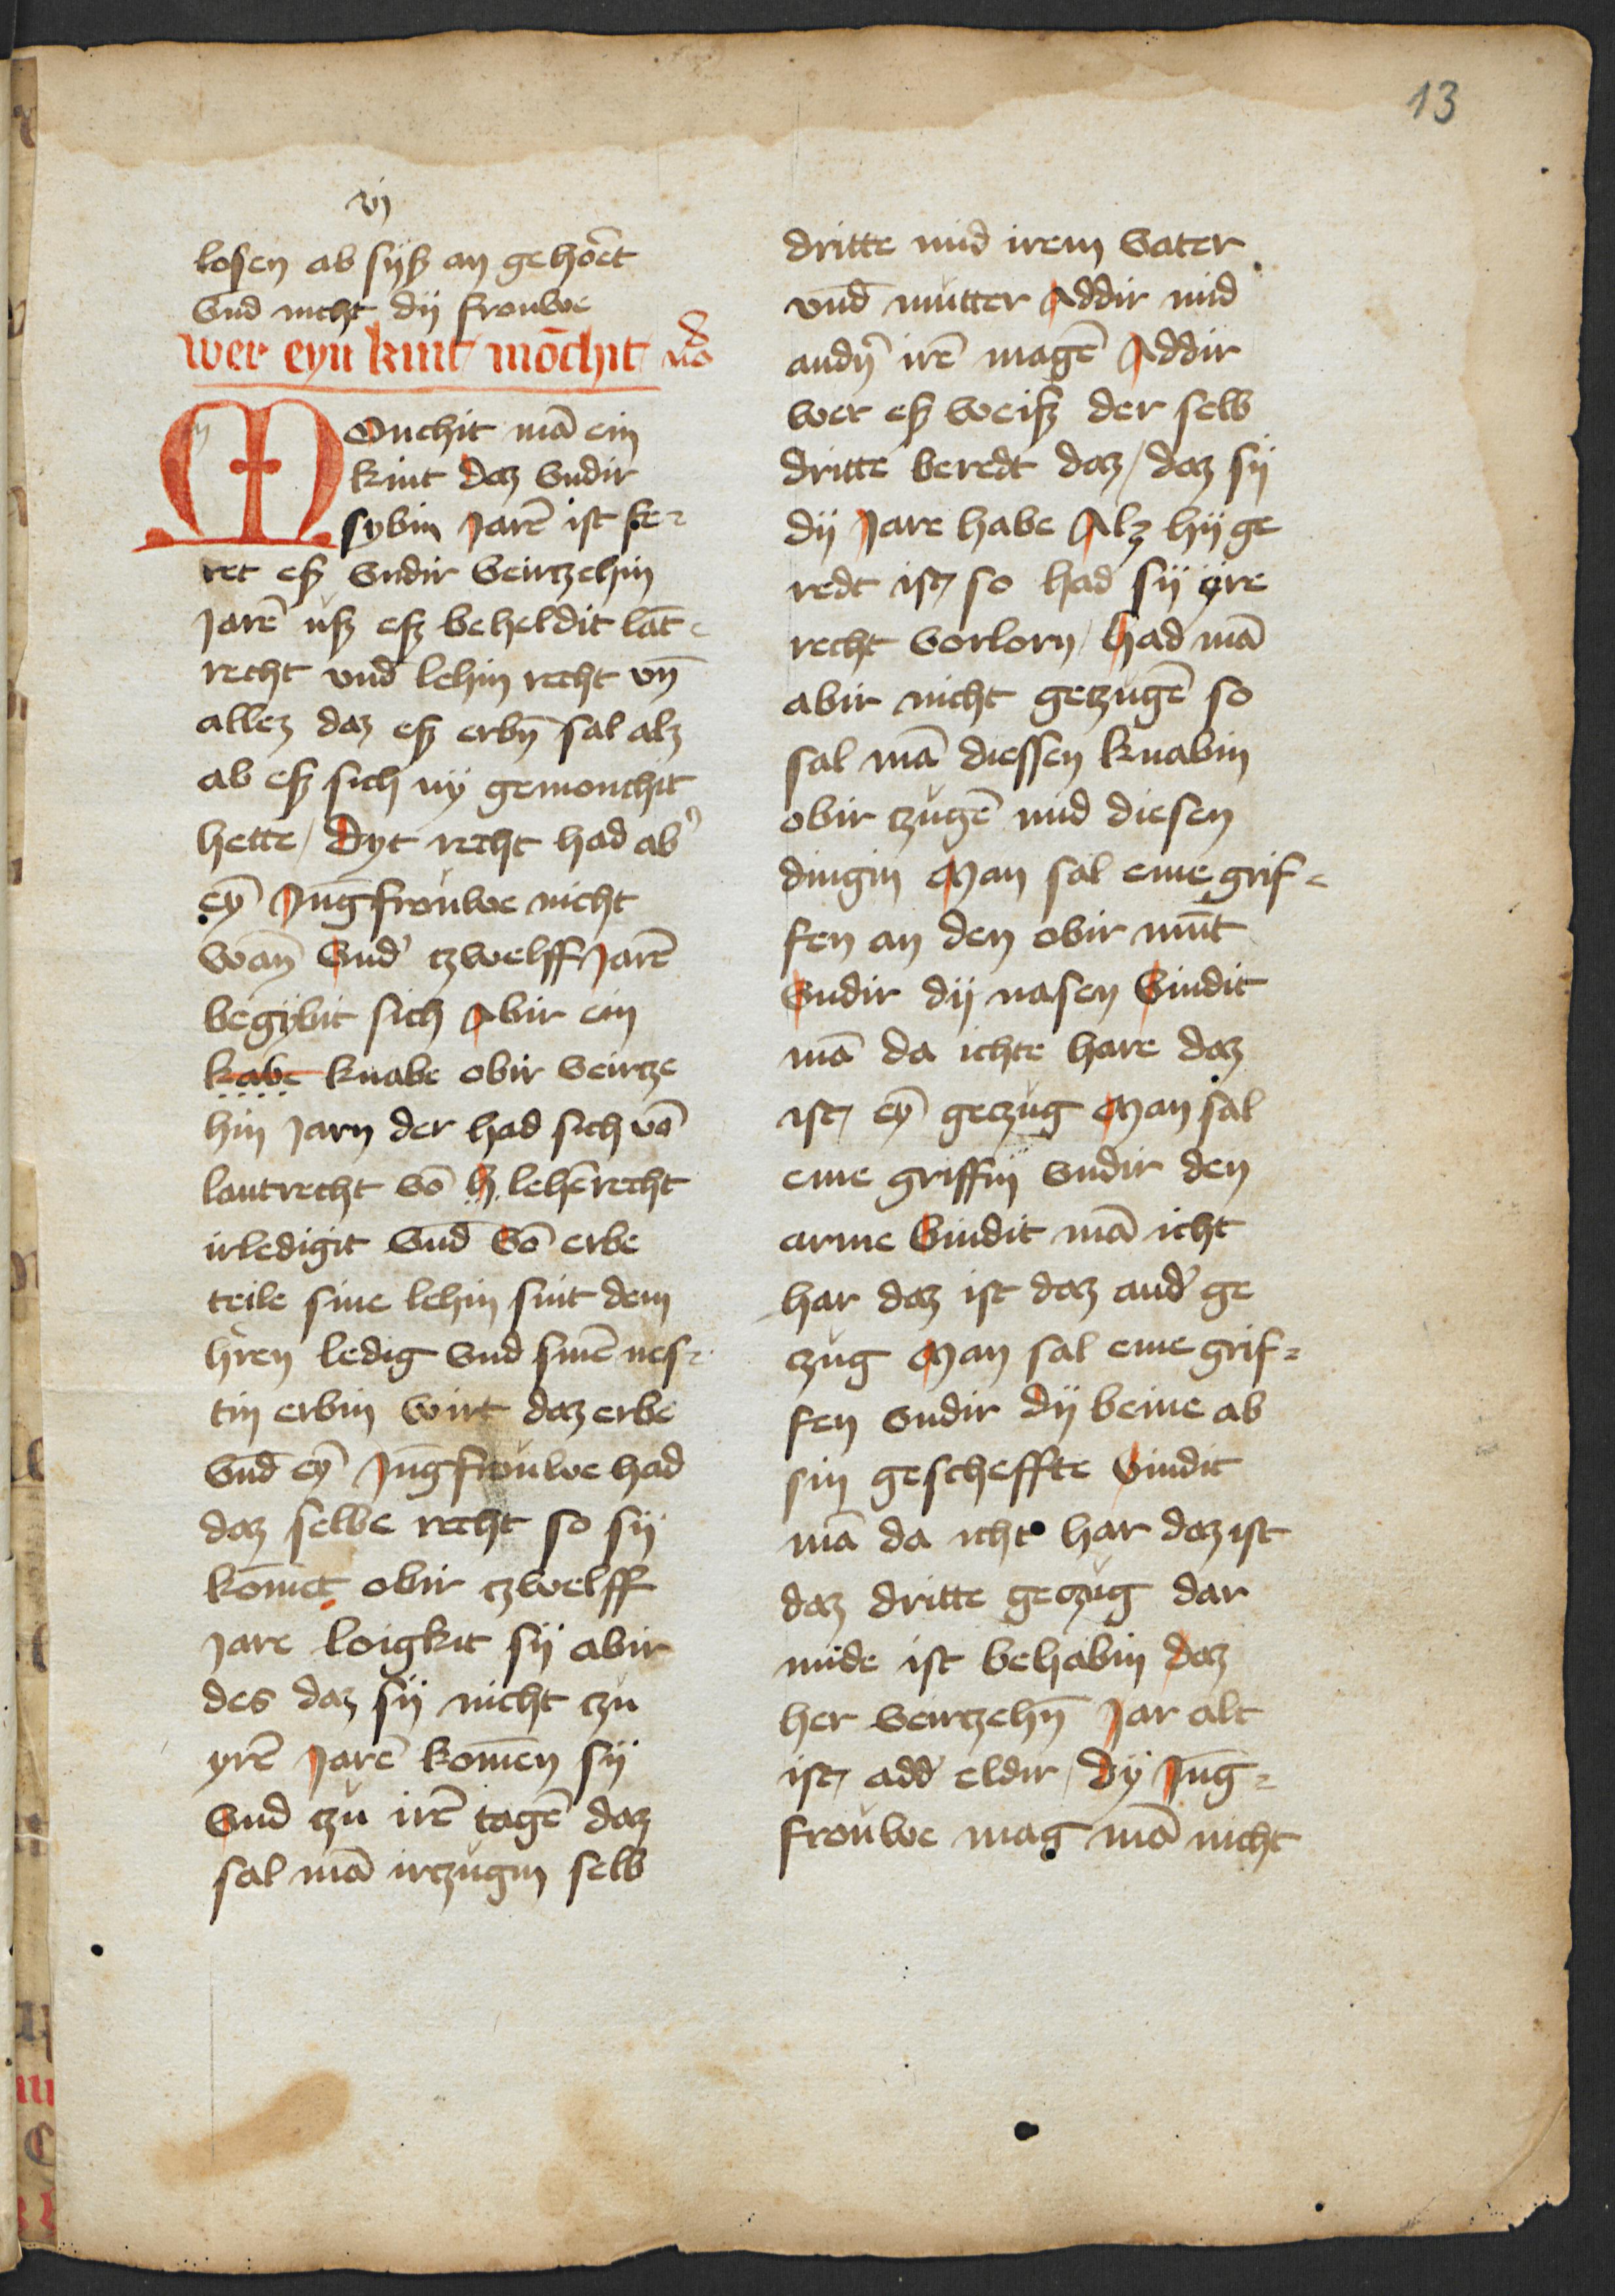 13
vj
losen ab syß an gehoͤēt
vnd nicht dÿ frouwe
wer eyn kint mōchit
Onchit mā ein
kint daz vndir
sybin Jarē ist ke-
ret eß vndir veirtzehin
Jarē uß eß beheldit lāt-
recht vnd lehin recht vn̄
allez daz eß erbn̄ sal alz
ab eß sich ny gemonchit
hette / Dyt recht had ab'
eȳ Jungfrouwe nicht
wan̄ vnd' tzwelff Jarē
begybit sich Abir ein
kabe knabe obir veirtze
hin Jarn der had sich vō
lantrecht vō h lehērecht
irledigit vnd vō erbe
teile sine lehin sint dem
h'ren ledig vnd sinē nes-
tin erbin wirt daz erbe
vnd eȳ Jungfrouwe had
daz selbe recht so sÿ
kōmet obir tzwelff
Jare loigkit sÿ abir
des daz sÿ nicht tzu
yrē Jarē komēn sÿ
vnd tzu irē tagē daz
sal mā irtzugin selb
dritte mid irem vater
vnd mutter Addir mid
andn̄ irē magē Addir
wer eß weiß der selb
dritte beredt daz / daz sÿ
dÿ Jare habe Alz hÿ ge
redt ist / so had sÿ ÿre
recht vorlorn / had mā
abir nicht getzugē so
sal mā diessen knabin
obir tzugē mid diesen
dingin Man sal eme grif-
fen an den obir mūt
vndir dÿ nasen vindit
mā da ichte hare daz
ist / eȳ getzug Man sal
eme griffin vndir den
arme vindit mā icht
har daz ist daz and' ge
tzug Man sal eme grif-
fen vndir dÿ beine ab
sin gescheffte vindit
mā da icht har daz ist
daz dritte getzug dar
mide ist behabin daz
her veirtzehn̄ Jar alt
ist / add' eldir / Dÿ Jung-
frouwe mag mā nicht